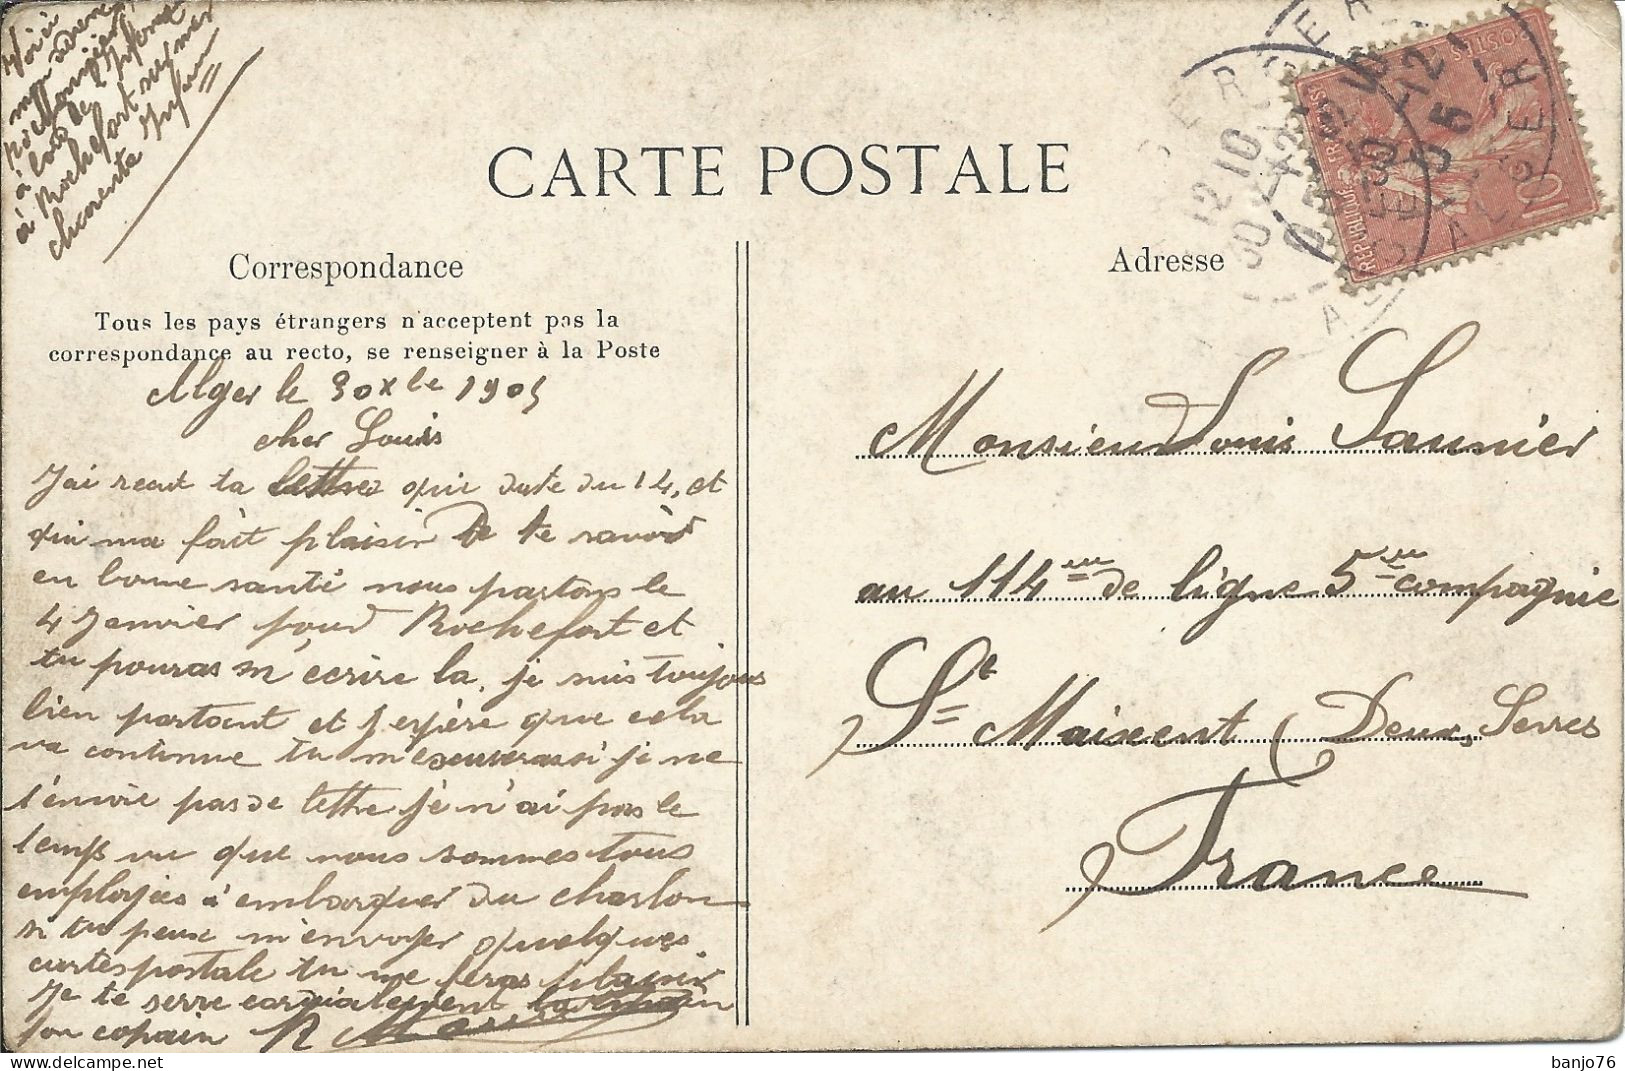 Voici
mon adresse
à bord de
à Rochefort sur mer
charente
CARTE POSTALE
Correspondance
Tous les pays étrangers n'acceptent pas la
correspondance au recto, se renseigner à la Poste
Alger le 30 xbe 1905
cher Louis
J'ai recut ta lettre qui date du 14, et
qui ma fait plaisir de te savoir
en bonne santé nous partons le
4 Janvier pour Rochefort et
tu pouras m'ecrire la, je suis toujours
bien portant et j'espère que cela
va continue tu m'escuserassi je ne
t'envoie pas de lettre je n'ai pas le
temps vu que nous sommes tous
employés à embarquer du charbon
si tu peux m'envoyer quelques
cartes postale tu me feras plaisir
Je te serre cordialement la main
ton copain R
Adresse
Monsieur Louis Saunier
au 114me de ligne 5me compagnie
St Maixent (Deux, Sevres
France
REPUBLIQUE FRANÇAISE
POSTES
10
ALGER
banjo76